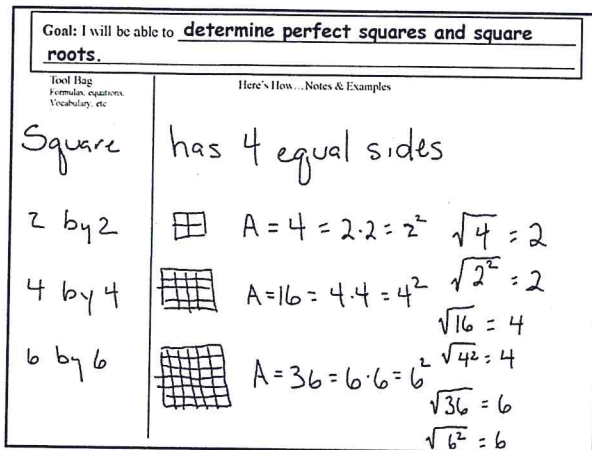 Goal: I will be able to determine perfect squares and square
roots.
Tool Bag
Formulas, equations,
Vocabulary, etc
Here's How...Notes & Examples
Square has 4 equal sides
2 by 2 A = 4 = 2·2 = 2² √4 = 2
√2² = 2
4 by 4 A = 16 = 4·4 = 4²
√16 = 4
√4² = 4
6 by 6 A = 36 = 6·6 = 6²
√36 = 6
√6² = 6